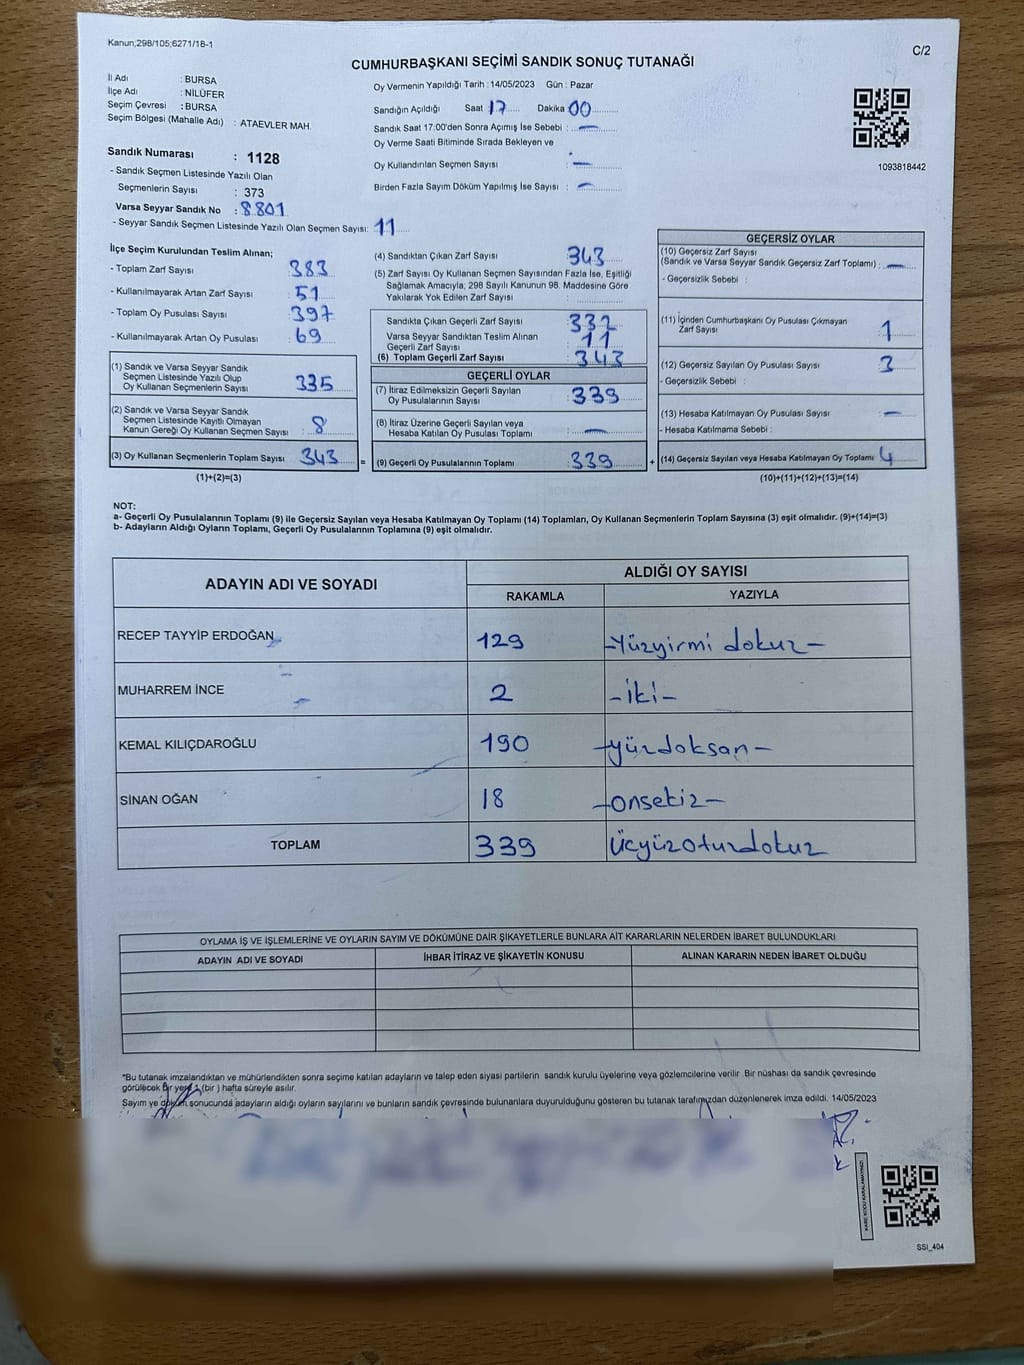 Kanun;298/105;6271/18-1
C/2
CUMHURBAŞKANI SEÇİMİ SANDIK SONUÇ TUTANAĞI
İl Adı : BURSA
İlçe Adı : NİLÜFER
Seçim Çevresi : BURSA
Seçim Bölgesi (Mahalle Adı) : ATAEVLER MAH.
Sandık Numarası : 1128
- Sandık Seçmen Listesinde Yazılı Olan
Seçmenlerin Sayısı : 373
Varsa Seyyar Sandık No : 8801
- Seyyar Sandık Seçmen Listesinde Yazılı Olan Seçmen Sayısı: 11
Oy Vermenin Yapıldığı Tarih : 14/05/2023 Gün : Pazar
Sandığın Açıldığı Saat 17 Dakika 00
Sandık Saat 17:00'den Sonra Açımış İse Sebebi : —
Oy Verme Saati Bitiminde Sırada Bekleyen ve
Oy Kullandırılan Seçmen Sayısı : —
Birden Fazla Sayım Döküm Yapılmış İse Sayısı : —
1093818442
İlçe Seçim Kurulundan Teslim Alınan;
- Toplam Zarf Sayısı : 383
- Kullanılmayarak Artan Zarf Sayısı : 51
- Toplam Oy Pusulası Sayısı : 397
- Kullanılmayarak Artan Oy Pusulası : 69
(1) Sandık ve Varsa Seyyar Sandık
Seçmen Listesinde Yazılı Olup
Oy Kullanan Seçmenlerin Sayısı : 335
(2) Sandık ve Varsa Seyyar Sandık
Seçmen Listesinde Kayıtlı Olmayan
Kanun Gereği Oy Kullanan Seçmen Sayısı : 8
(3) Oy Kullanan Seçmenlerin Toplam Sayısı : 343
(1)+(2)=(3)
(4) Sandıktan Çıkan Zarf Sayısı : 343
(5) Zarf Sayısı Oy Kullanan Seçmen Sayısından Fazla İse, Eşitliği
Sağlamak Amacıyla; 298 Sayılı Kanunun 98. Maddesine Göre
Yakılarak Yok Edilen Zarf Sayısı :
Sandıkta Çıkan Geçerli Zarf Sayısı : 332
Varsa Seyyar Sandıktan Teslim Alınan
Geçerli Zarf Sayısı : 11
(6) Toplam Geçerli Zarf Sayısı : 343
GEÇERLİ OYLAR
(7) İtiraz Edilmeksizin Geçerli Sayılan
Oy Pusulalarının Sayısı : 339
(8) İtiraz Üzerine Geçerli Sayılan veya
Hesaba Katılan Oy Pusulası Toplamı : —
= (9) Geçerli Oy Pusulalarının Toplamı : 339
GEÇERSİZ OYLAR
(10) Geçersiz Zarf Sayısı
(Sandık ve Varsa Seyyar Sandık Geçersiz Zarf Toplamı) : —
- Geçersizlik Sebebi :
(11) İçinden Cumhurbaşkanı Oy Pusulası Çıkmayan
Zarf Sayısı : 1
(12) Geçersiz Sayılan Oy Pusulası Sayısı : 3
- Geçersizlik Sebebi :
(13) Hesaba Katılmayan Oy Pusulası Sayısı : —
- Hesaba Katılmama Sebebi :
+ (14) Geçersiz Sayılan veya Hesaba Katılmayan Oy Toplamı : 4
(10)+(11)+(12)+(13)=(14)
NOT:
a- Geçerli Oy Pusulalarının Toplamı (9) ile Geçersiz Sayılan veya Hesaba Katılmayan Oy Toplamı (14) Toplamları, Oy Kullanan Seçmenlerin Toplam Sayısına (3) eşit olmalıdır. (9)+(14)=(3)
b- Adayların Aldığı Oyların Toplamı, Geçerli Oy Pusulalarının Toplamına (9) eşit olmalıdır.
ADAYIN ADI VE SOYADI ALDIĞI OY SAYISI
RAKAMLA YAZIYLA
RECEP TAYYİP ERDOĞAN 129 -Yüzyirmi dokuz-
MUHARREM İNCE 2 -iki-
KEMAL KILIÇDAROĞLU 190 -yüzdoksan-
SİNAN OĞAN 18 -onsekiz-
TOPLAM 339 Üçyüzotuzdokuz
OYLAMA İŞ VE İŞLEMLERİNE VE OYLARIN SAYIM VE DÖKÜMÜNE DAİR ŞİKAYETLERLE BUNLARA AİT KARARLARIN NELERDEN İBARET BULUNDUKLARI
ADAYIN ADI VE SOYADI İHBAR İTİRAZ VE ŞİKAYETİN KONUSU ALINAN KARARIN NEDEN İBARET OLDUĞU
*Bu tutanak imzalandıktan ve mühürlendikten sonra seçime katılan adayların ve talep eden siyasi partilerin sandık kurulu üyelerine veya gözlemcilerine verilir .Bir nüshası da sandık çevresinde
görülecek bir yere 1 (bir ) hafta süreyle asılır.
Sayım ve döküm sonucunda adayların aldığı oyların sayılarını ve bunların sandık çevresinde bulunanlara duyurulduğunu gösteren bu tutanak tarafımızdan düzenlenerek imza edildi. 14/05/2023
KARE KODU KARALAMAYINIZ!
SSİ_404